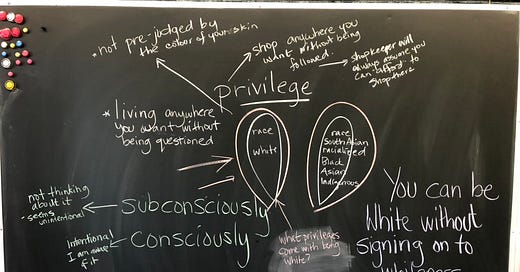 * not pre-judged by
the colour of your skin
shop anywhere you
want without being
followed.
shopkeeper will
always assume you
can afford to
shop there
Privilege
* living anywhere
you want without
being questioned
race
white
race
South Asian
racialized
Black
Asian
Indigenous
not thinking
about it
- seems
unintentional
subconsciously
Intentional
I am aware
of it
consciously
What privileges
come with being
white?
You can be
White without
signing on to
whiteness